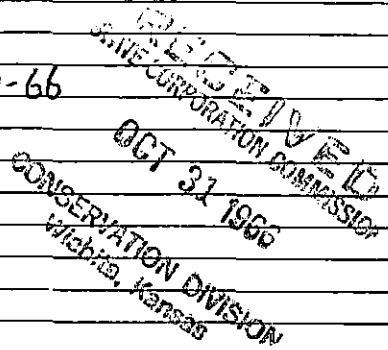 -66
RECEIVED
STATE CORPORATION COMMISSION
OCT 31 1966
CONSERVATION DIVISION
Wichita, Kansas